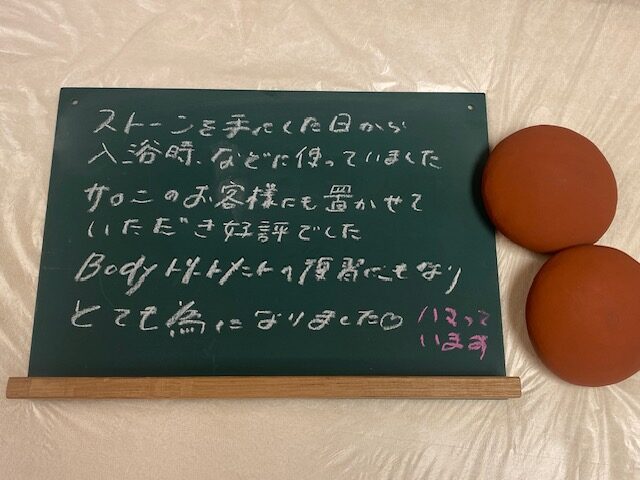 ストーンを手にした日から
入浴時、などに使っていました
サロンのお客様にも置かせて
いただき好評でした
Bodyトリートメントの復習にもなり
とても為になりました♡
ハマって
います